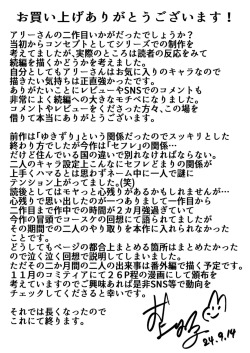 お買い上げありがとうございます！
アリーさんの二作目いかがだったでしょうか？
当初からコンセプトとしてシリーズでの制作を
考えてましたが、実際のところは読者の反応をみて
続編を描くかどうかを考えました。
自分としてもアリーさんはお気に入りのキャラなので
描きたい気持ちは正直強かったです。
ありがたいことにレビューやSNSでのコメントも
非常によく続編への大きなモチベになりました。
レビューやコメントをくださった方々、この場を
借りて本当にありがとうございます。
前作は「ゆきずり」という関係だったのでスッキリとした
終わり方でしたが今作は「セフレ」の関係…
だけど住んでいる国の違いで別れなければならない。
二人のキャラ設定上こんなにセフレどまりの関係が
上手くハマるとは思わずネーム中に一人で謎に
テンション上がってました。(笑)
読後としてはモヤっと心残りがあるかもしれませんが…
心残りで思い出したのが一つありまして一作目から
二作目まで作中の時間が２カ月強過ぎていて
今作の冒頭でコースケの回想にて語られてましたが
その期間での二人のやり取りを本作に入れられなかった
ことです。
どうしてもページの都合上まとめる箇所はまとめたかった
ので泣く泣く回想で済ましてしまいました。
ただその二か月間の二人の出来事は番外編で描く予定です。
１１月のコミティアにて２６P程の漫画にして頒布を
考えていますのでご興味あれば是非SNS等で動向を
チェックしてくださると幸いです。
それでは長くなったので
これにて終わります。
24.9.14